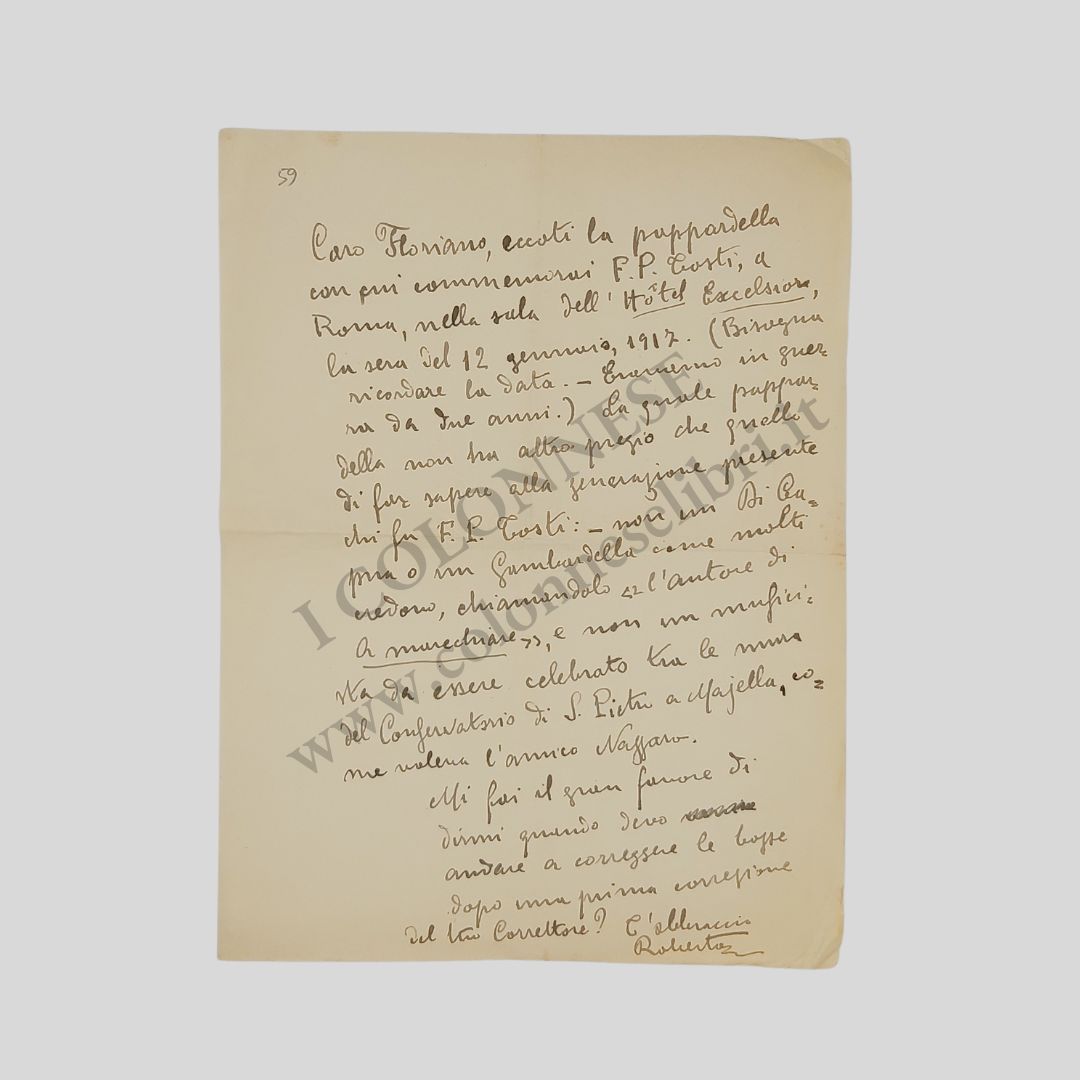 59
Caro Floriano, eccoti la pappardella
con cui commemorai F. P. Tosti, a
Roma, nella sala dell'Hôtel Excelsior,
la sera del 12 gennaio, 1917. (Bisogna
ricordare la data. – Eravamo in guer=
ra da due anni.) La quale pappar=
della non ha altro pregio che quello
di far sapere alla generazione presente
chi fu F. P. Tosti: – non un Di Ca=
pua o un Gambardella come molti
credono, chiamandolo «l'autore di
A marechiare», e non un musici=
sta da essere celebrato tra le mura
del Conservatorio di S. Pietro a Majella, co=
me voleva l'amico Nazzaro.
Mi fai il gran favore di
dirmi quando devo
andare a correggere le bozze
dopo una prima correzione
del tuo Correttore? T'abbraccio
Roberto
I COLONNESE
www.colonneselibri.it